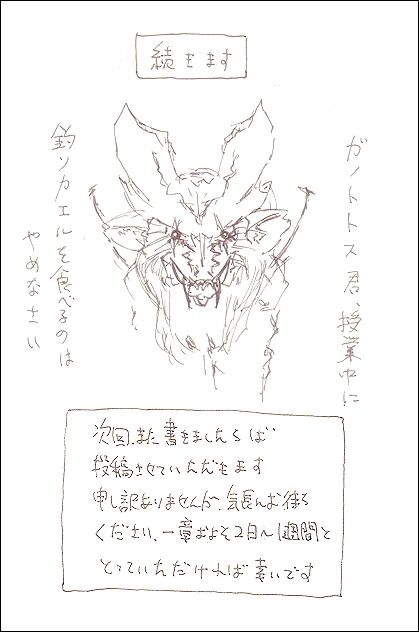 続きます
ガノトトス君、授業中に
釣りカエルを食べるのは
やめなさい
次回、また書きましたらば
投稿させていただきます
申し訳ありませんが、気長にお待ち
ください、一章およそ2日〜1週間と
とっていただければ幸いです